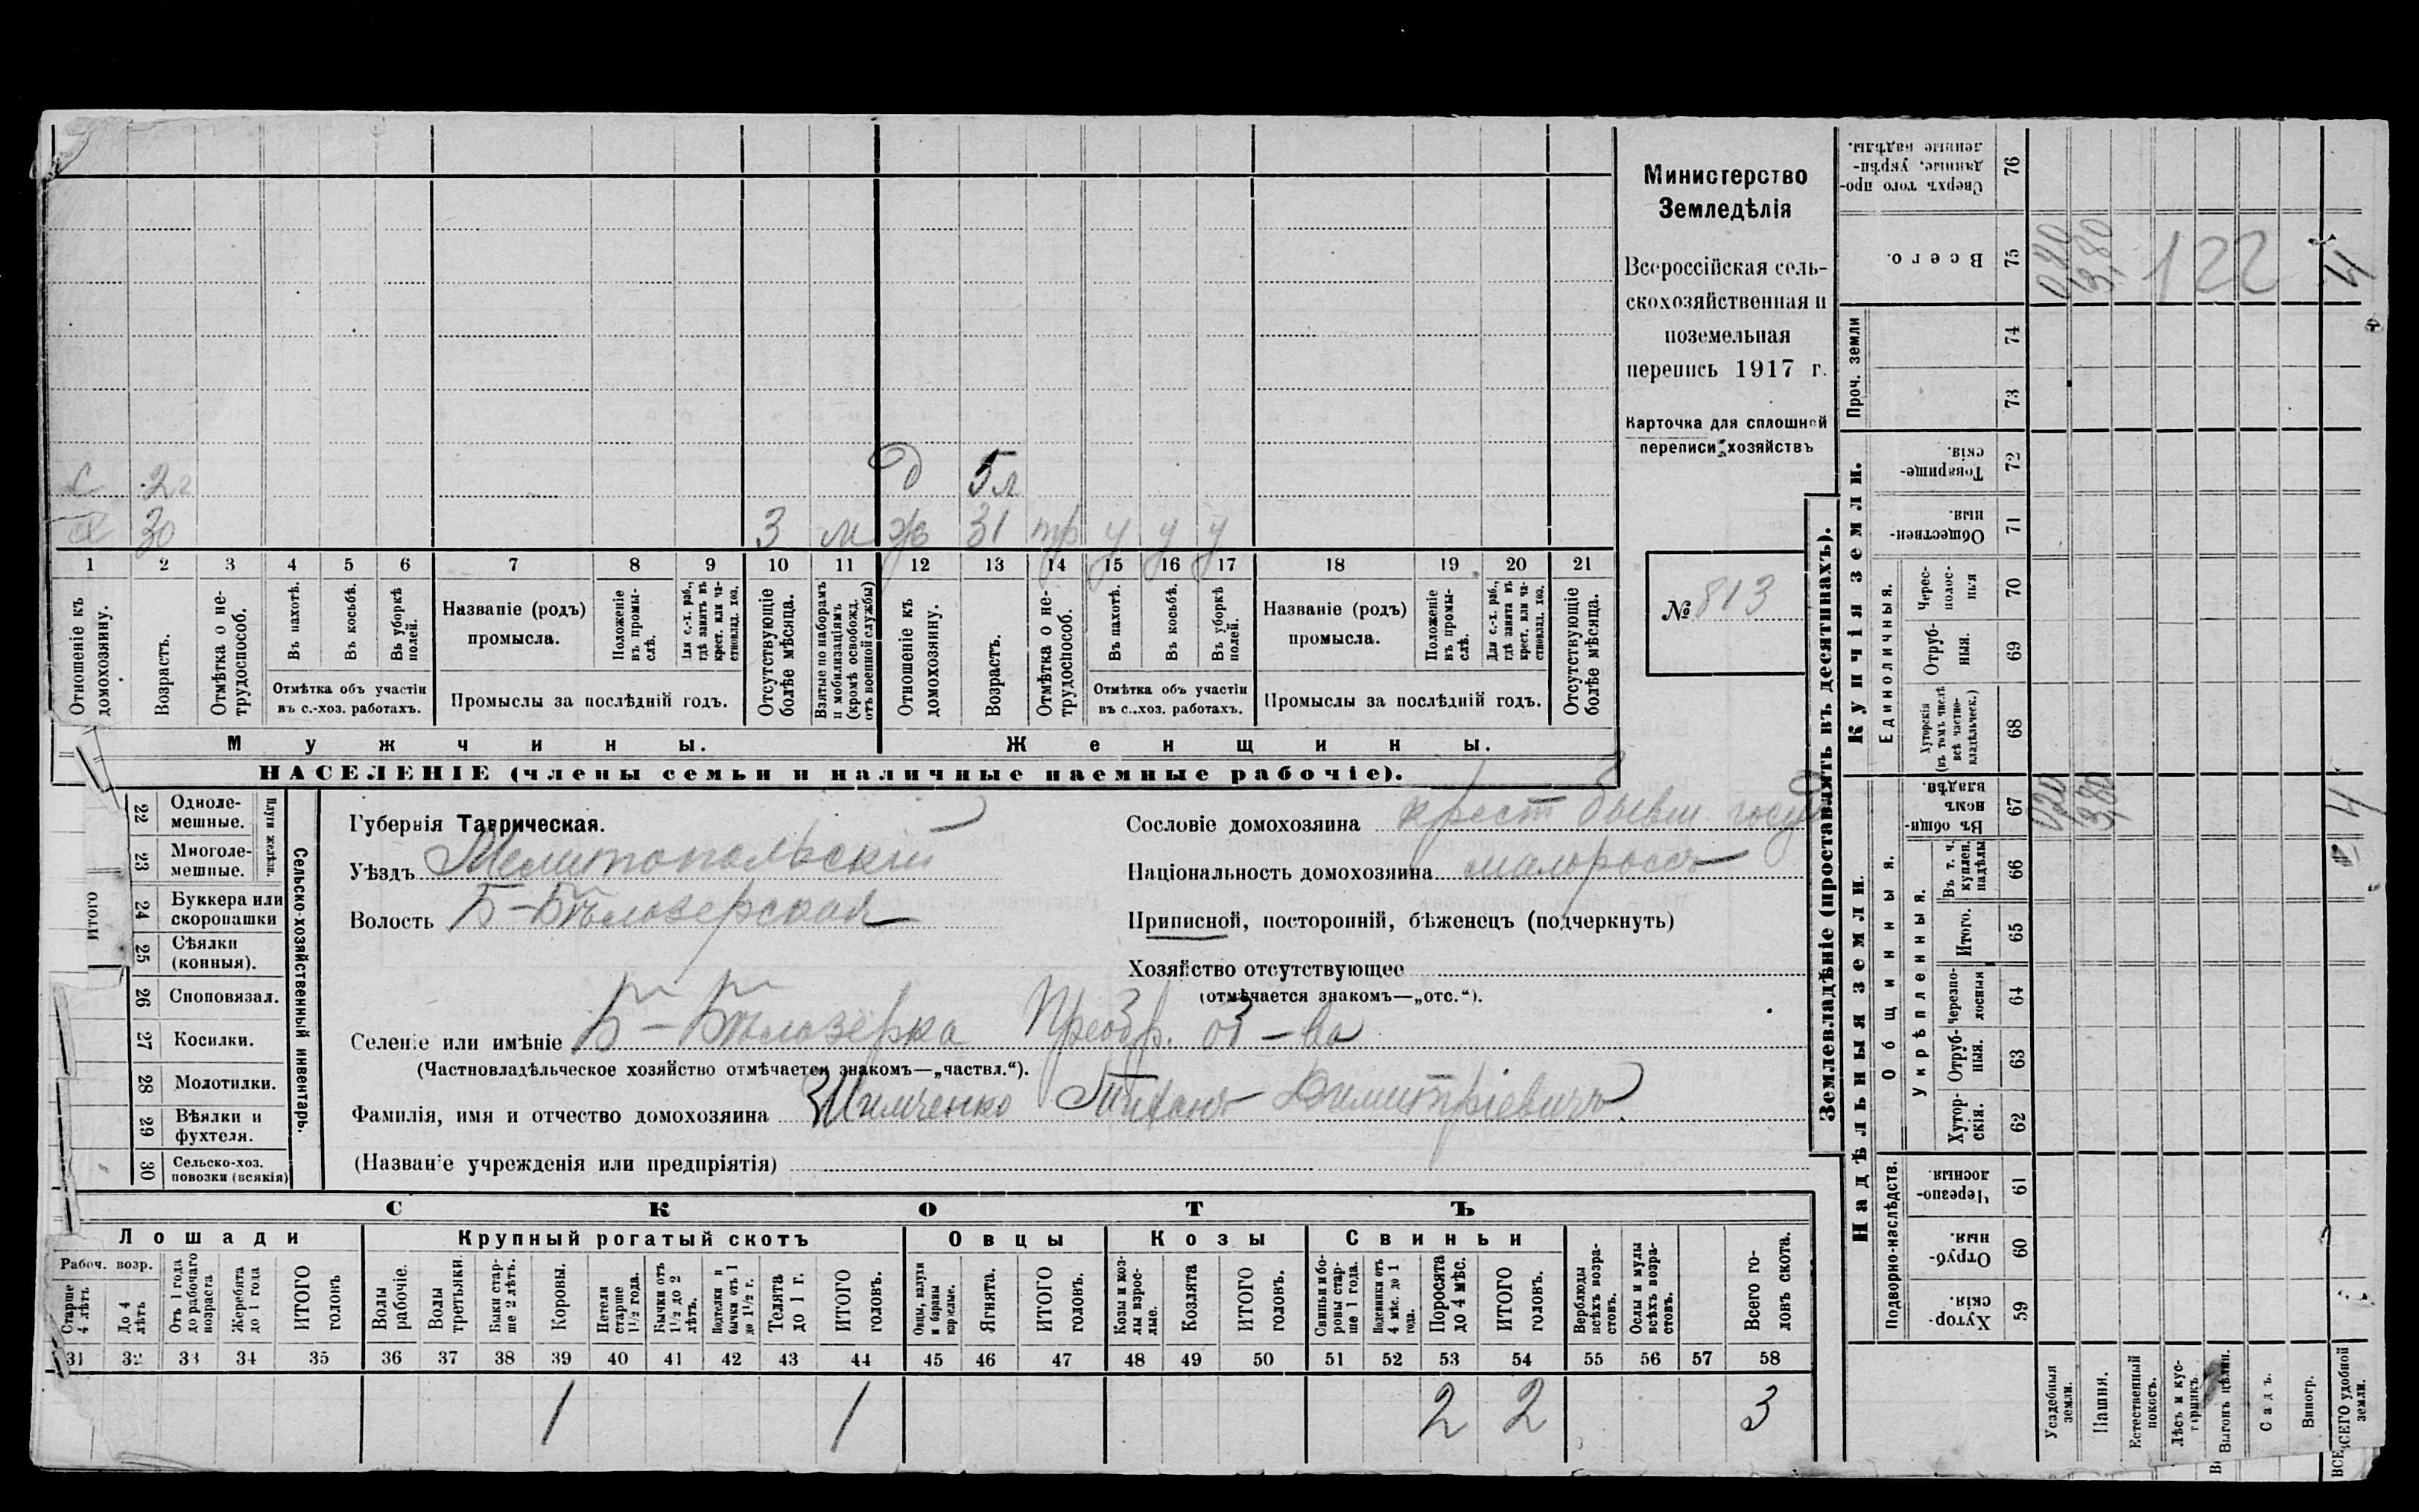 с 2г д 5 л
х 30 3 м ж 31 тр у у у
1 2 3 4 5 6 7 8 9 10 11 12 13 14 15 16 17 18 19 20 21
Отношеніе къ домохозяину.
Возрастъ.
Отмѣтка о не-трудоспособ.
Въ пахотѣ.
Въ косьбѣ.
Въ уборкѣ полей.
Отмѣтка объ участіи
въ с.-хоз. работахъ.
Названіе (родъ)
промысла.
Положеніе въ промы-слѣ.
Для с.-х. раб., гдѣ занятъ въ крест. или ча-стновлад. хоз.
Промыслы за послѣдній годъ.
Отсутствующіе болѣе мѣсяца.
Взятые по наборамъ и мобилизаціямъ (кромѣ освобожд. отъ военной службы)
Отношеніе къ домохозяину.
Возрастъ.
Отмѣтка о не-трудоспособ.
Въ пахотѣ.
Въ косьбѣ.
Въ уборкѣ полей.
Отмѣтка объ участіи
въ с.-хоз. работахъ.
Названіе (родъ)
промысла.
Положеніе въ промы-слѣ.
Для с.-х. раб., гдѣ занята въ крест. или ча-стновлад. хоз.
Промыслы за послѣдній годъ.
Отсутствующіе болѣе мѣсяца.
Мужчины.
Женщины.
НАСЕЛЕНІЕ (члены семьи и наличные наемные рабочіе).
Министерство
Земледѣлія
Всероссійская сель-
скохозяйственная и
поземельная
перепись 1917 г.
Карточка для сплошной
переписи хозяйствъ
№ 813
Итого
Сельско-хозяйственный инвентарь.
Плуги желѣзн.
22 Одноле-мешные.
23 Многоле-мешные.
24 Буккера или скоропашки
25 Сѣялки (конныя).
26 Сноповязал.
27 Косилки.
28 Молотилки.
29 Вѣялки и фухтеля.
30 Сельско-хоз. повозки (всякія)
Губернія Таврическая.
Уѣздъ Мелитопольскій
Волость Б-Бѣлозерская
Сословіе домохозяина крест бывш. госуд
Національность домохозяина малороссъ
Приписной, посторонній, бѣженецъ (подчеркнуть)
Хозяйство отсутствующее
(отмѣчается знакомъ—„отс.“).
Селеніе или имѣніе Б-Бѣлозерка Преобр. об-ва
(Частновладѣльческое хозяйство отмѣчается знакомъ—„частвл.“).
Фамилія, имя и отчество домохозяина Шимченко Тихонъ Димитріевичъ
(Названіе учрежденія или предпріятія)
СКОТЪ
Лошади Крупный рогатый скотъ Овцы Козы Свиньи
Рабоч. возр.
Старше 4 лѣтъ
До 4 лѣтъ
Отъ 1 года до рабочаго возраста
Жеребята до 1 года
ИТОГО головъ
Волы рабочіе.
Волы третьяки.
Быки стар-ше 2 лѣтъ.
Коровы.
Нетели старше 1½ года.
Бычки отъ 1½ до 2 лѣтъ.
Подтелки и бычки отъ 1 до 1½ г.
Телята до 1 г.
ИТОГО головъ.
Овцы, валухи и бараны взрослые.
Ягнята.
ИТОГО головъ.
Козы и коз-лы взрос-лые.
Козлята
ИТОГО головъ.
Свиньи и бо-ровы стар-ше 1 года.
Подсвинки отъ 4 мѣс. до 1 года.
Поросята до 4 мѣс.
ИТОГО головъ.
Верблюды всѣхъ возра-стовъ.
Ослы и мулы всѣхъ возра-стовъ.
Всего го-ловъ скота.
31 32 33 34 35 36 37 38 39 40 41 42 43 44 45 46 47 48 49 50 51 52 53 54 55 56 57 58
1 1 2 2 3
Землевладѣніе (проставлять въ десятинахъ).
Сверхъ того про-данные, укрѣп-ленные надѣлы. 76
Всего. 75 0,40 3,80 122 4
Проч. земли
74
73
Купчія земли.
Товарище-скія. 72
Обществен-ныя. 71
Единоличныя.
Черес-полос-ныя 70
Отруб-ныя. 69
Хуторскія (въ томъ числѣ всѣ частно-владѣльческ.) 68
Надѣльныя земли.
Общинныя.
Въ общи-номъ владѣн. 67 0,20 3,80 4
Укрѣпленныя.
Въ т. ч. куплен. надѣлы 66
Итого. 65
Черезпо-лосныя 64
Отруб-ныя. 63
Хутор-скія. 62
Подворно-наслѣдств.
Черезпо-лосныя 61
Отруб-ныя. 60
Хутор-скія. 59
Усадебныя земли.
Пашня.
Естественный покосъ.
Лѣсъ и кус-тарникъ.
Выгонъ цѣлин.
Садъ.
Виногр.
ВСЕГО удобной земли.